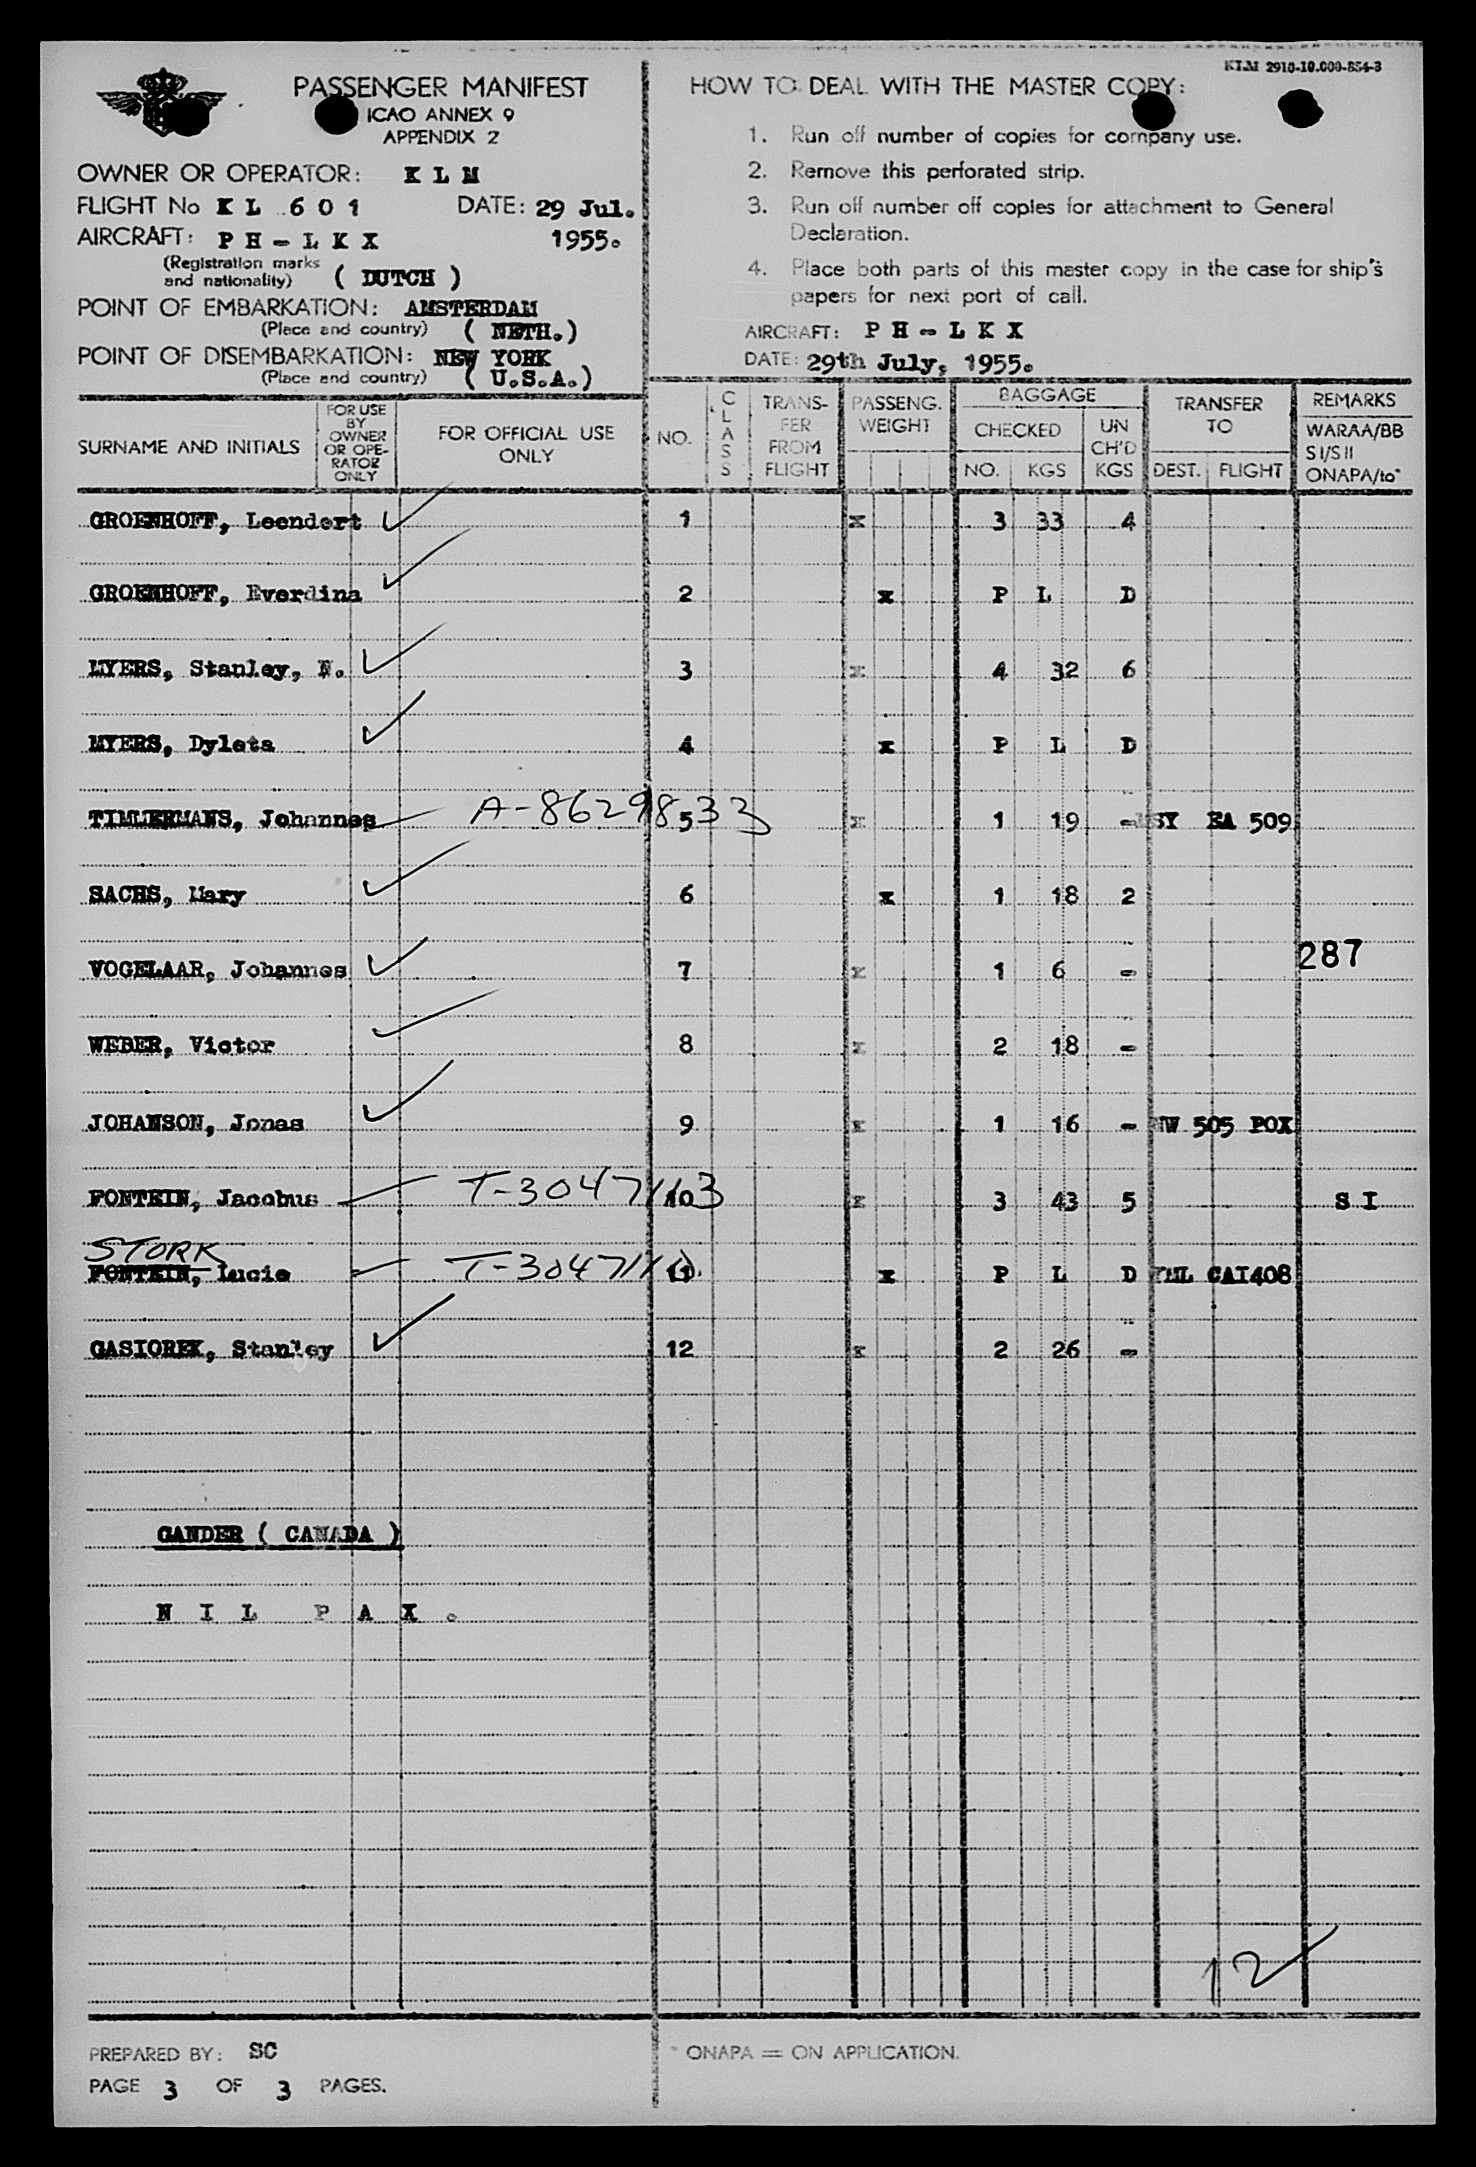 KLM 2910-10.000-854-3
PASSENGER MANIFEST
ICAO ANNEX 9
APPENDIX 2
OWNER OR OPERATOR: K L M
FLIGHT No K L 6 0 1 DATE: 29 Jul.
AIRCRAFT: P H - L K X 1955.
(Registration marks
and nationality) ( DUTCH )
POINT OF EMBARKATION: AMSTERDAM
(Place and country) ( NETH.)
POINT OF DISEMBARKATION: NEW YORK
(Place and country) ( U.S.A.)
HOW TO DEAL WITH THE MASTER COPY:
1. Run off number of copies for company use.
2. Remove this perforated strip.
3. Run off number off copies for attachment to General
Declaration.
4. Place both parts of this master copy in the case for ship's
papers for next port of call.
AIRCRAFT: P H - L K X
DATE: 29th July, 1955.
SURNAME AND INITIALS
FOR USE
BY
OWNER
OR OPE-
RATOR
ONLY
FOR OFFICIAL USE
ONLY
NO.
CLASS
TRANS-
FER
FROM
FLIGHT
PASSENG.
WEIGHT
BAGGAGE
CHECKED
NO. KGS
UN
CH'D
KGS
TRANSFER
TO
DEST. FLIGHT
REMARKS
WARAA/BB
SI/SII
ONAPA/to*
GROENHOFF, Leendert 1 x 3 33 4
GROENHOFF, Everdina 2 x P L D
MYERS, Stanley, N. 3 x 4 32 6
MYERS, Dyleta 4 x P L D
TIMMERMANS, Johannes A-8629833 5 x 1 19 - MSY EA 509
SACHS, Mary 6 x 1 18 2
VOGELAAR, Johannes 7 x 1 6 - 287
WEBER, Victor 8 x 2 18 -
JOHANSON, Jonas 9 x 1 16 - NW 505 POX
FONTEIN, Jacobus T-3047113 10 x 3 43 5 S I
STORK
FONTEIN, Lucie 11 x P L D YML CAI408
GASIOREK, Stanley 12 x 2 26 -
GANDER ( CANADA )
N I L P A X .
12
PREPARED BY: SC
PAGE 3 OF 3 PAGES.
* ONAPA = ON APPLICATION.